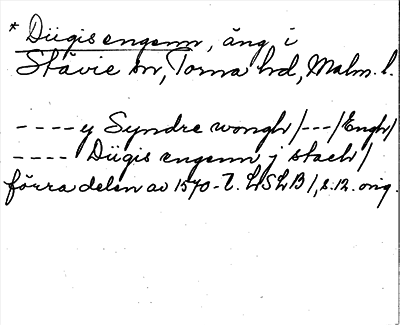 * Dügis engenn, äng i
Stävie sn, Torna hd, Malm. l.
----y Syndre wongh/---/Engh/
---- Dügis engenn j staek/
förra delen av 1570-t. LSLB1, s. 12. orig.